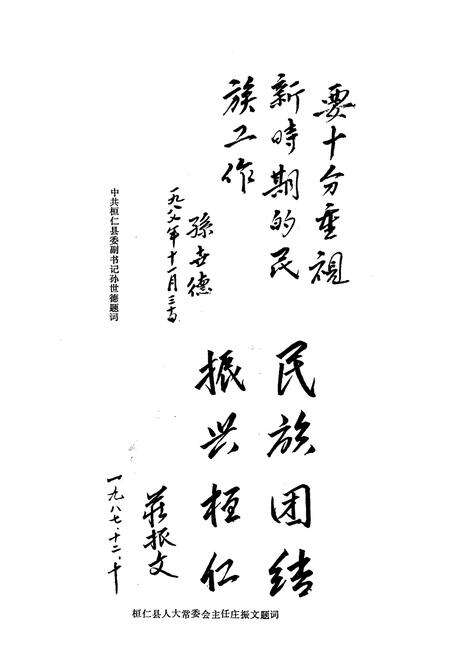 要十分重視
新時期的民
族工作
孫世德
一九八七年十一月三十日
中共桓仁县委副书记孙世德题词
民族团结
振兴桓仁
莊振文
一九八七·十二·十
桓仁县人大常委会主任庄振文题词